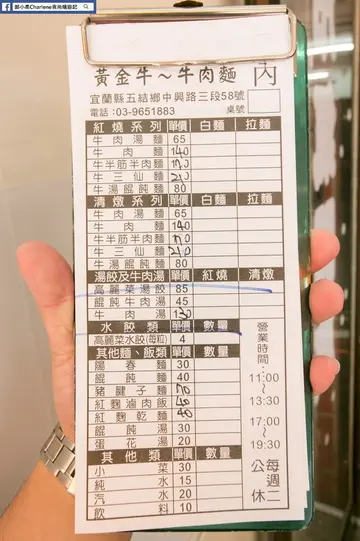 鄭小柔Charlene宜尚纏遊記
黃金牛～牛肉麵 內
宜蘭縣五結鄉中興路三段58號
電話：03-9651883 桌號
紅燒系列 單價 白麵 拉麵
牛肉湯麵 65
牛肉麵 140
牛半筋半肉麵 170
牛三仙麵 210
牛湯餛飩麵 80
清燉系列 單價 白麵 拉麵
牛肉湯麵 65
牛肉麵 140
牛半筋半肉麵 170
牛三仙麵 210
牛湯餛飩麵 80
湯餃及牛肉湯 單價 紅燒 清燉
高麗菜湯餃 85
餛飩牛肉湯 45
牛肉湯 130
水餃類 單價 數量
高麗菜水餃(每粒) 4
其他麵、飯類 單價 數量
陽春麵 30
餛飩麵 40
豬腱子麵 70
紅麴滷肉飯
紅麴乾麵
餛飩湯 30
蛋花湯 20
其他類 單價 數量
小菜 30
純水 15
汽水 20
飲料 10
營業時間：
11:00
~
13:30
17:00
~
19:30
每週二
公休